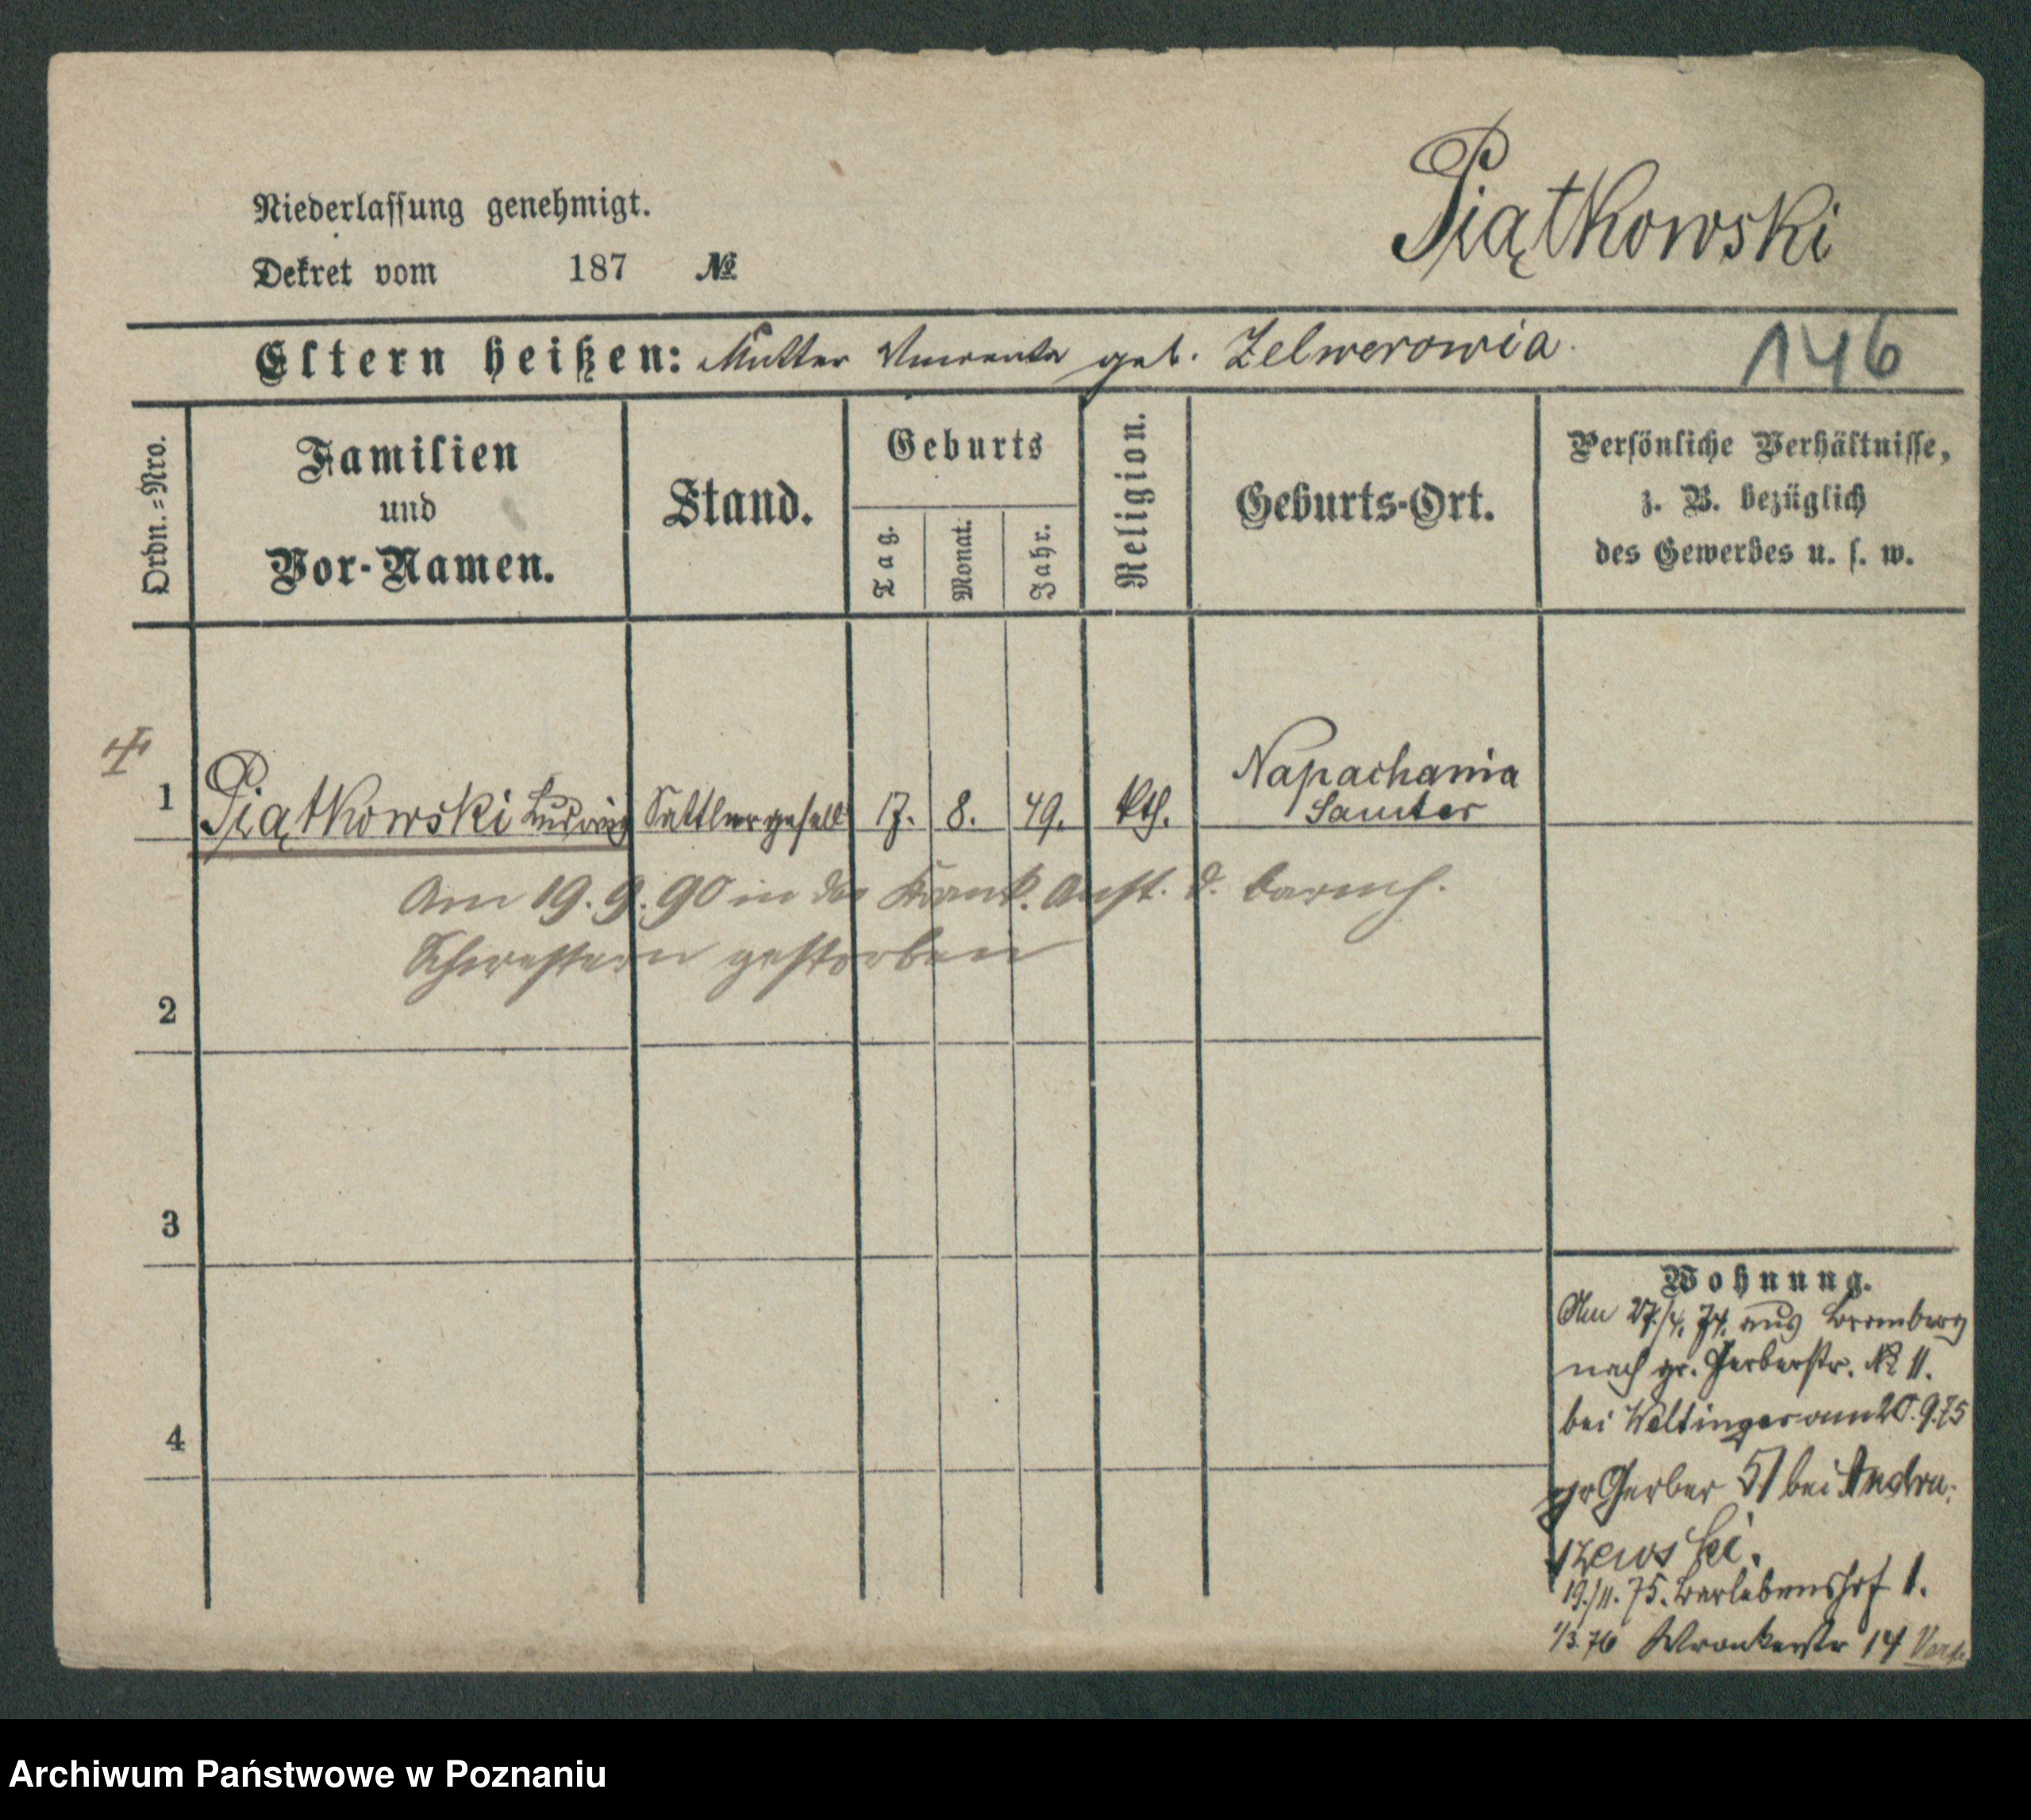 Piątkowski
Niederlassung genehmigt.
Dekret vom 187 №
Eltern heißen: Mutter geb. Zelwerowia.
146
Ordn.=Nro.
Familien
und
Vor-Namen.
Stand.
Geburts
Tag.
Monat.
Jahr.
Religion.
Geburts-Ort.
Persönliche Verhältnisse,
z. B. bezüglich
des Gewerbes u. s. w.
1 Piątkowski Ludwig Sattlergesell 17. 8. 49. kth. Napachania
Samter
Am 19.9.90 in der Krank. Anst. d. barmh.
Schwestern gestorben
2
3
4
Wohnung.
Am 27./4. 74. aus Bromberg
nach gr. Gerberstr. № 11.
bei am 20.9.75
gr Gerber 51 bei Andru-
szewski.
19./11. 75. Berlebenshof 1.
1/3 76 Wronkerstr 14
Archiwum Państwowe w Poznaniu